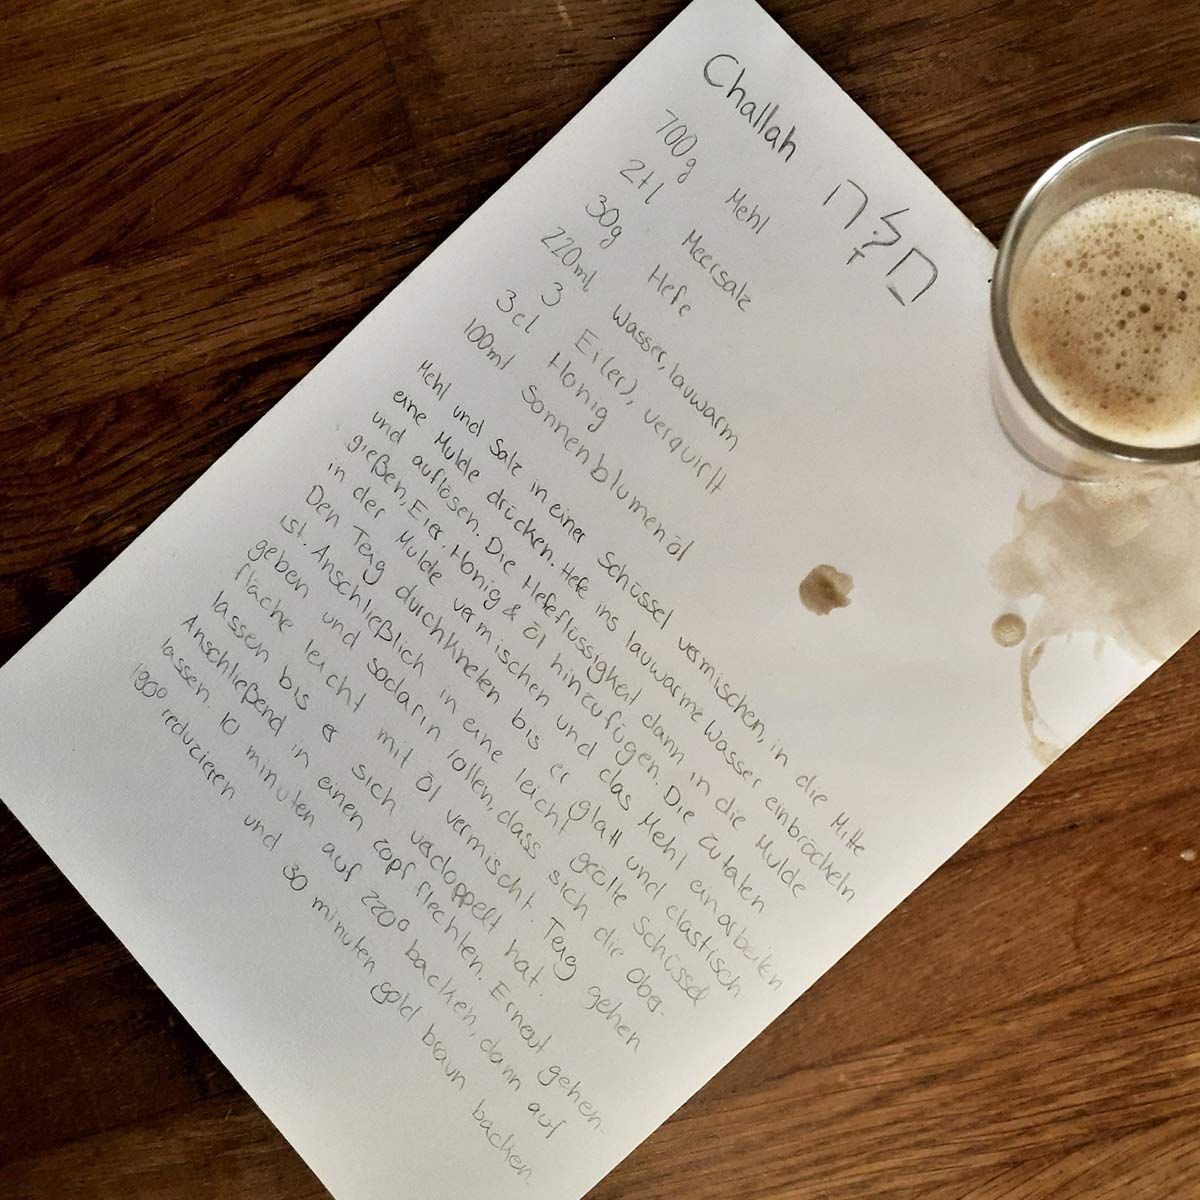 Challah חַלָּה
700g Mehl
2tl Meersalz
30g Hefe
220ml Wasser, lauwarm
3 Ei(er), verquirlt
3cl Honig
100ml Sonnenblumenöl
Mehl und Salz in einer Schüssel vermischen, in die Mitte
eine Mulde drücken. Hefe ins lauwarme Wasser einbröckeln
und auflösen. Die Hefeflüssigkeit dann in die Mulde
gießen, Eier, Honig & Öl hinzufügen. Die Zutaten
in der Mulde vermischen und das Mehl einarbeiten
Den Teig durchkneten bis er glatt und elastisch
ist. Anschließlich in eine leicht geölte Schüssel
geben und sodarin rollen, dass sich die Ober-
fläche leicht mit Öl vermischt. Teig gehen
lassen bis er sich verdoppelt hat.
Anschließend in einen Zopf flechten. Erneut gehen-
lassen. 10 minuten auf 220° backen, dann auf
190° reduzieren und 30 minuten gold braun backen.